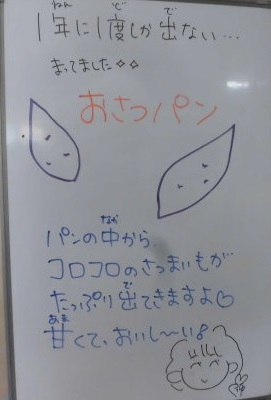 1年に1度しか出ない…
まってました✧✧
おさつパン
パンの中から、
コロコロのさつまいもが
たっぷり出てきますよ♡
甘くて、おいし〜い♪